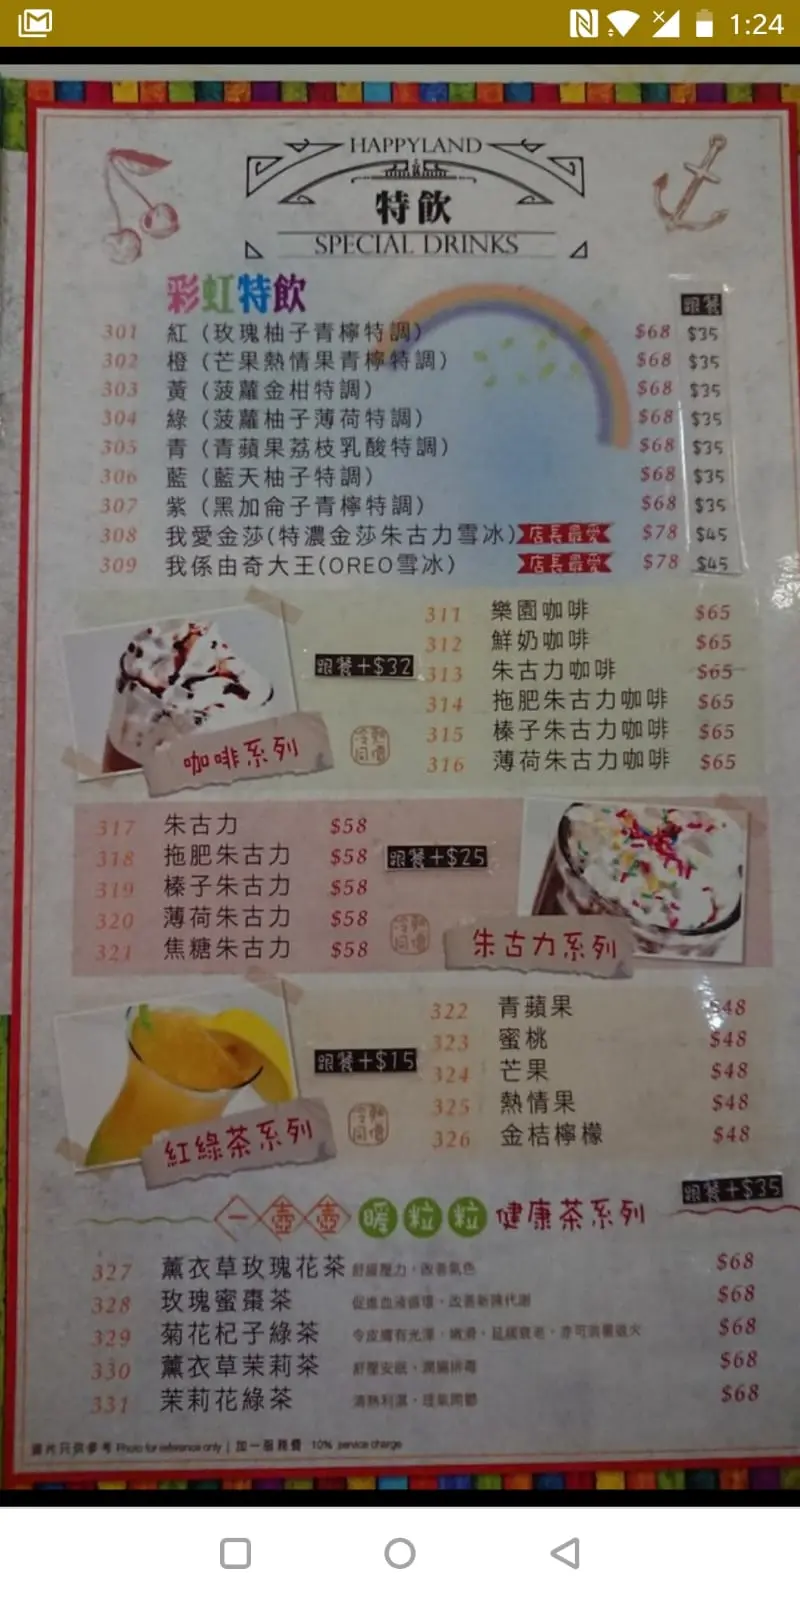 1:24
HAPPYLAND
特飲
SPECIAL DRINKS
彩虹特飲
跟餐
301 紅（玫瑰柚子青檸特調） $68 $35
302 橙（芒果熱情果青檸特調） $68 $35
303 黃（菠蘿金柑特調） $68 $35
304 綠（菠蘿柚子薄荷特調） $68 $35
305 青（青蘋果荔枝乳酸特調） $68 $35
306 藍（藍天柚子特調） $68 $35
307 紫（黑加侖子青檸特調） $68 $35
308 我愛金莎(特濃金莎朱古力雪冰) 店長最愛 $78 $45
309 我係由奇大王(OREO雪冰) 店長最愛 $78 $45
咖啡系列
跟餐+$32
冷熱同價
311 樂園咖啡 $65
312 鮮奶咖啡 $65
313 朱古力咖啡 $65
314 拖肥朱古力咖啡 $65
315 榛子朱古力咖啡 $65
316 薄荷朱古力咖啡 $65
317 朱古力 $58
318 拖肥朱古力 $58
319 榛子朱古力 $58
320 薄荷朱古力 $58
321 焦糖朱古力 $58
跟餐+$25
冷熱同價
朱古力系列
紅綠茶系列
跟餐+$15
冷熱同價
322 青蘋果 $48
323 蜜桃 $48
324 芒果 $48
325 熱情果 $48
326 金桔檸檬 $48
跟餐+$35
一壺壺 暖粒粒 健康茶系列
327 薰衣草玫瑰花茶 舒緩壓力，改善氣色 $68
328 玫瑰蜜棗茶 促進血液循環，改善新陳代謝 $68
329 菊花杞子綠茶 令皮膚有光澤，嫩滑，延緩衰老，亦可消暑退火 $68
330 薰衣草茉莉茶 舒壓安眠，潤腸排毒 $68
331 茉莉花綠茶 清熱利濕，理氣開鬱 $68
圖片只供參考 Photo for reference only | 加一服務費 10% service charge